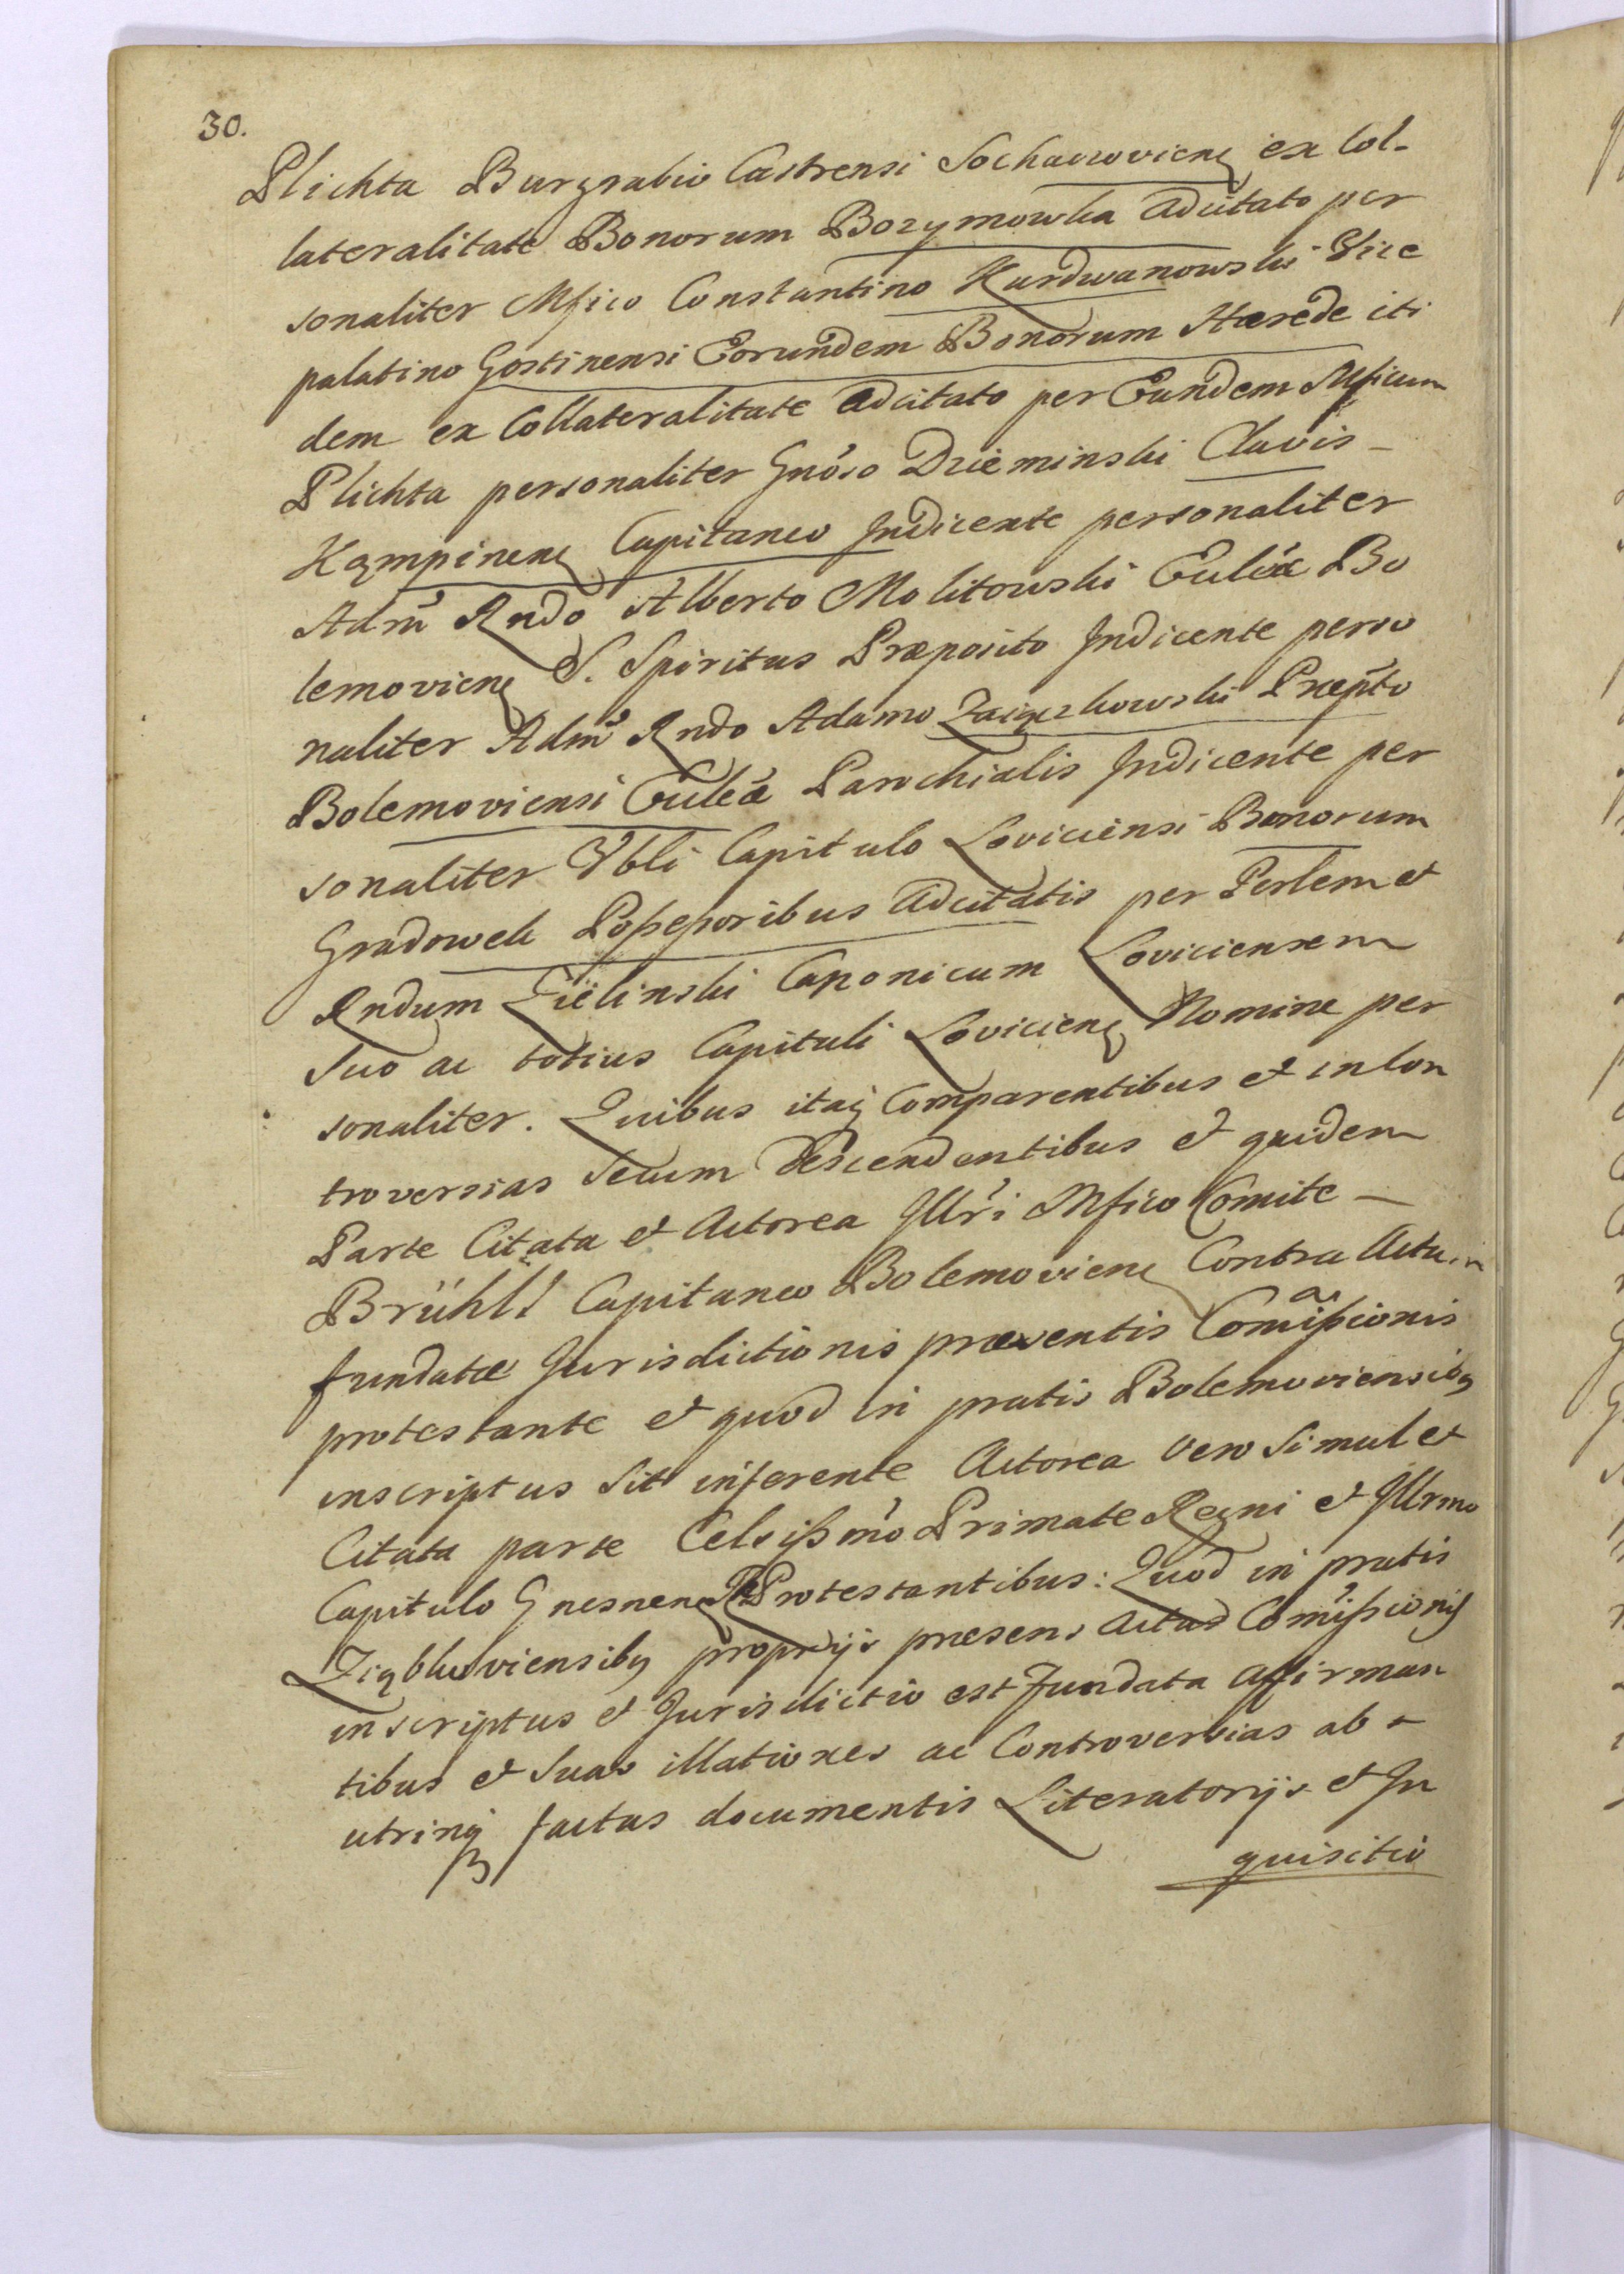 30.
Plichta Burgrabio Castrensi Sochaczovienę ex Col-
lateralitate Bonorum Bozymowka adcitato per
sonaliter Mfico Constantino Kurdwanowski Vice
palatino Gostinensi Eorundem Bonorum Hærede iti
dem ex Collateralitate adcitato per Eundem Mficum
Plichta personaliter Gnoso Dzieminski Clavis-
Kąmpinenę Capitaneo Indicente personaliter
Adm̃ Rndo Alberto Molitowski Eccleæ Bo
lemovienę S. Spiritus Præposito Indicente perso
naliter Adm̃ Rndo Adamo Præpto
Bolemoviensi Eccleæ Parochialis Indicente per
sonaliter Vbli Capitulo Loviciensi Bonorum
Gradowek Poßeßoribus adcitatis per Perlem et
Rndum Zielinski Canonicum Loviciensem
Suo ac totius Capituli Lovicienę Nomine per
sonaliter. Quibus itaq Comparentibus et in Con
troversias Secum descendentibus et quidem
Parte Citata et Actorea Illri Mfico Comite-
Brühll Capitaneo Bolemovienę Contra Actum
fundatæ Jurisdictionis præsentis Comißionis
protestante et quod in pratis Bolemoviensibꝫ
inscriptus Sit inferente Actorea vero Simul et
Citata parte Celsißmo Primate Regni et Illrmo
Capitulo Gnesnenę Protestantibus: Quod in pratis
Ziąbkoviensibꝫ proprijs præsens Actus Comißionis
inscriptus et Jurisdictio est fundata affirman
tibus et Suas illationes ac Controversias ab-
utrinq factas documentis Literatorijs et In
quisitio